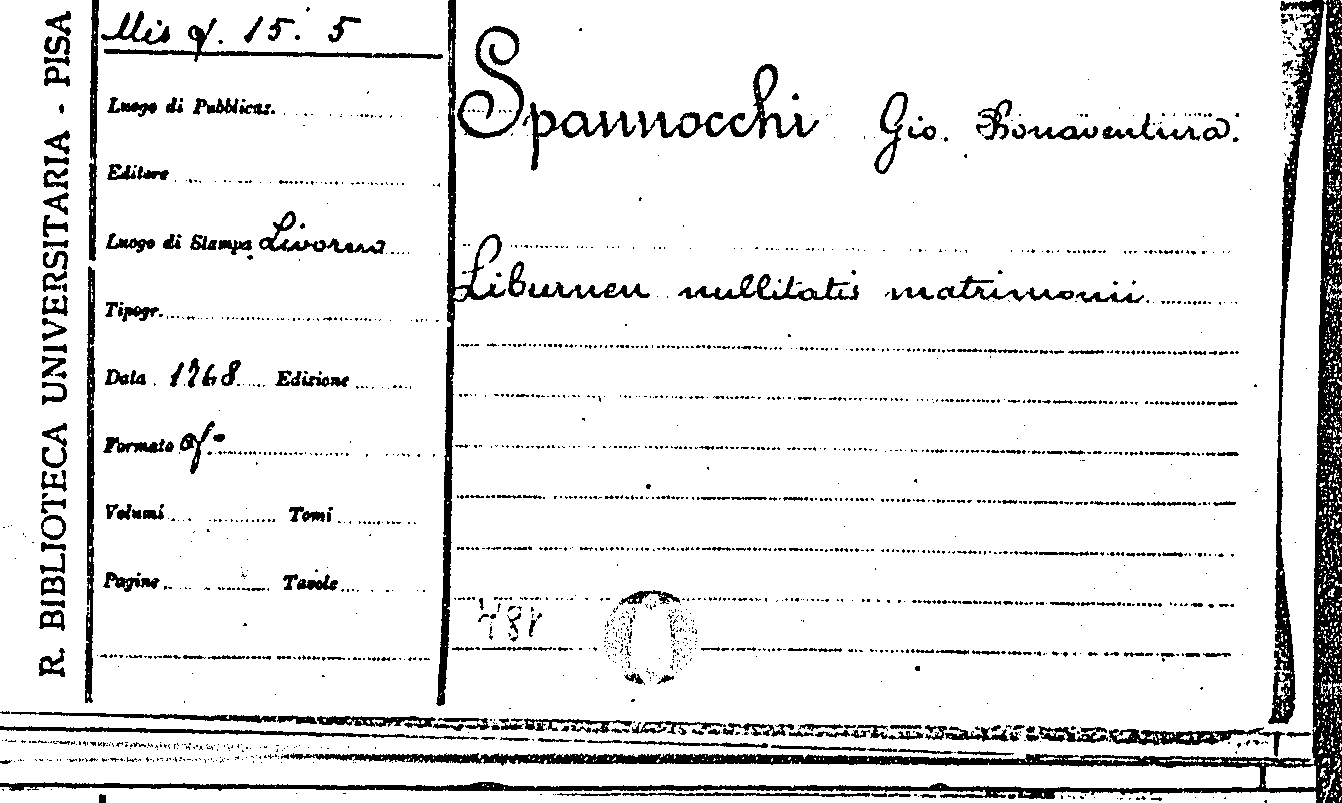 R. BIBLIOTECA UNIVERSITARIA - PISA
Mis 15. 5
Spannocchi Gio. Bonaventura.
Luogo di Pubblicaz.
Editore
Luogo di Stampa Livorno
Liburnen nullitatis matrimonii
Tipogr.
Data 1768 Edizione
Formato
Volumi Tomi
Pagine Tavole